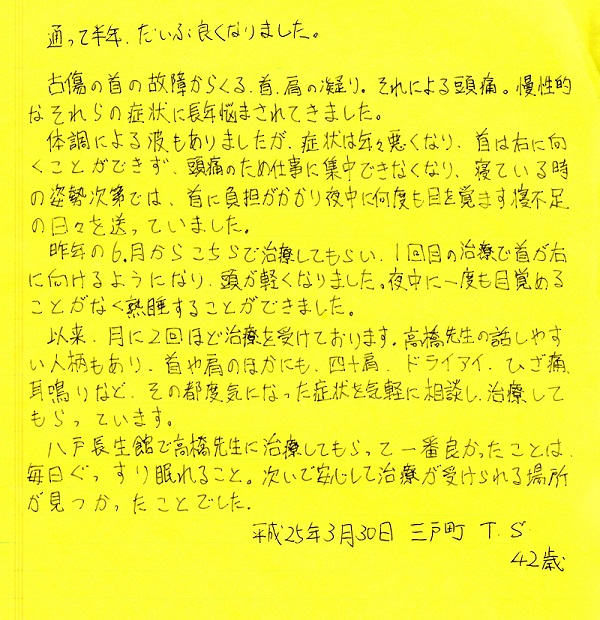 通って半年、だいぶ良くなりました。
古傷の首の故障からくる、首、肩の凝り。それによる頭痛。慢性的
なそれらの症状に長年悩まされてきました。
体調による波もありましたが、症状は年々悪くなり、首は右に向
くことができず、頭痛のため仕事に集中できなくなり、寝ている時
の姿勢次第では、首に負担がかかり夜中に何度も目を覚ます寝不足
の日々を送っていました。
昨年の6月からこちらで治療してもらい、1回目の治療で首が右
に向けるようになり、頭が軽くなりました。夜中に一度も目覚める
ことがなく熟睡することができました。
以来、月に2回ほど治療を受けております。高橋先生の話しやす
い人柄もあり、首や肩のほかにも、四十肩、ドライアイ、ひざ痛、
耳鳴りなど、その都度気になった症状を気軽に相談し、治療して
もらっています。
八戸長生館で高橋先生に治療してもらって一番良かったことは、
毎日ぐっすり眠れること。次いで安心して治療が受けられる場所
が見つかったことでした。
平成25年3月30日 三戸町 T.S
42歳